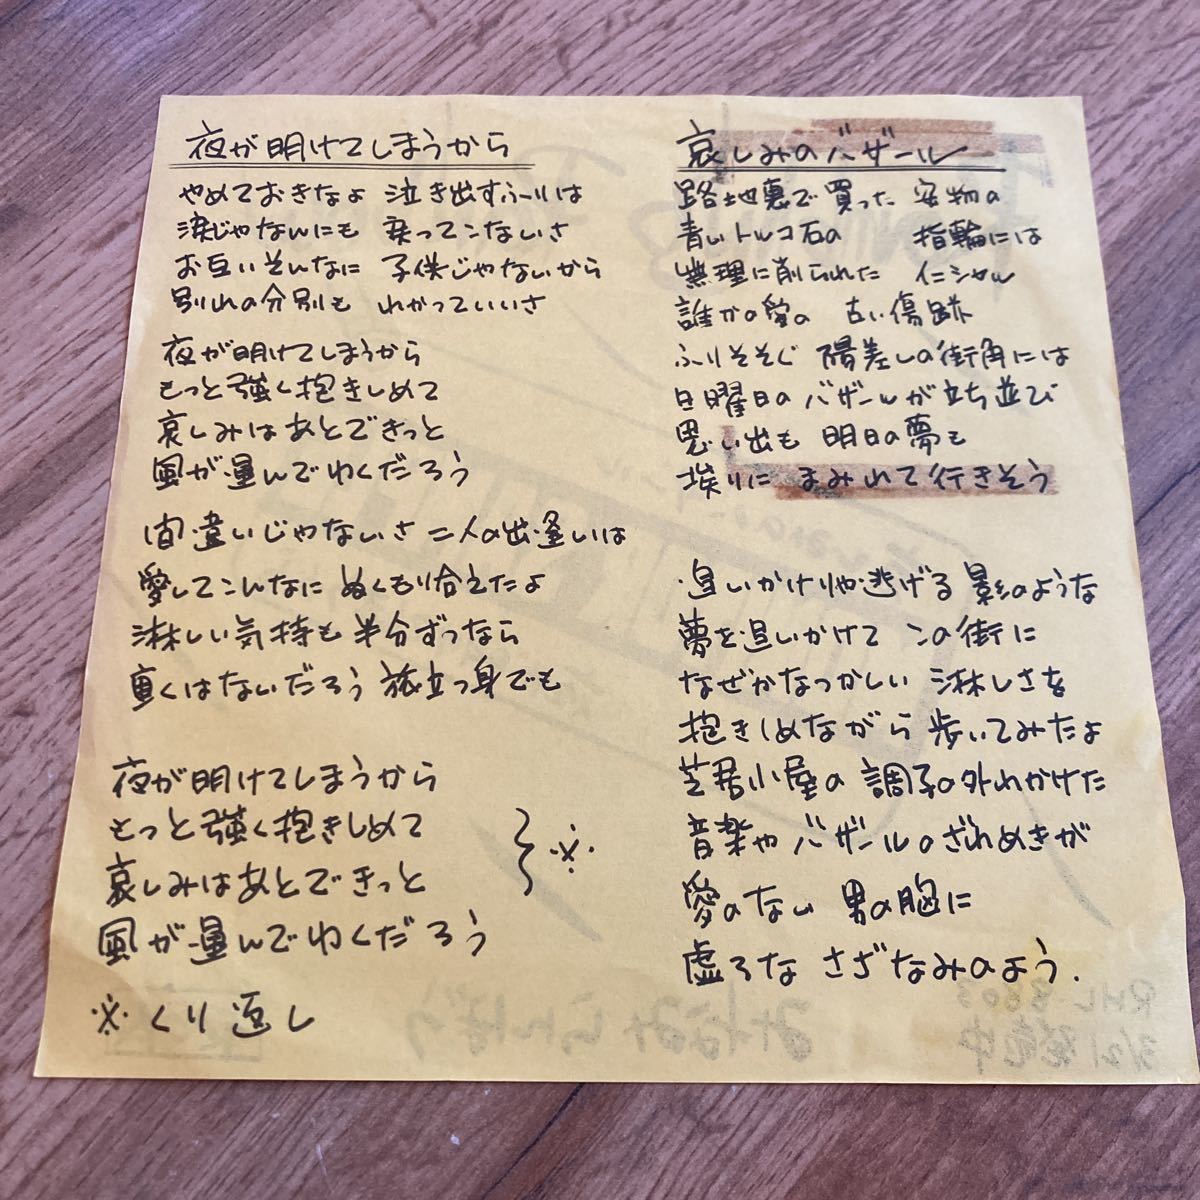 夜が明けてしまうから
やめておきなよ 泣き出すふりは
涙じゃなんにも 戻ってこないさ
お互いそんなに 子供じゃないから
別れの分別も わかっていいさ
夜が明けてしまうから
もっと強く抱きしめて
哀しみはあとできっと
風が運んでゆくだろう
間違いじゃないさ 二人の出逢いは
愛してこんなに ぬくもり合えたよ
淋しい気持も 半分ずつなら
重くはないだろう 旅立つ身でも
夜が明けてしまうから
もっと強く抱きしめて
哀しみはあとできっと
風が運んでゆくだろう
※
※くり返し
哀しみのバザール
路地裏で買った 安物の
青いトルコ石の 指輪には
無理に削られた イニシャル
誰かの愛の 古い傷跡
ふりそそぐ 陽差しの街角には
日曜日のバザールが立ち並び
思い出も 明日の夢も
埃りに まみれて行きそう
追いかけりゃ逃げる 影のような
夢を追いかけて この街に
なぜかなつかしい 淋しさを
抱きしめながら 歩いてみたよ
芝居小屋の 調子の外れかけた
音楽や バザールのざわめきが
愛のない 男の胸に
虚ろな さざなみのよう.